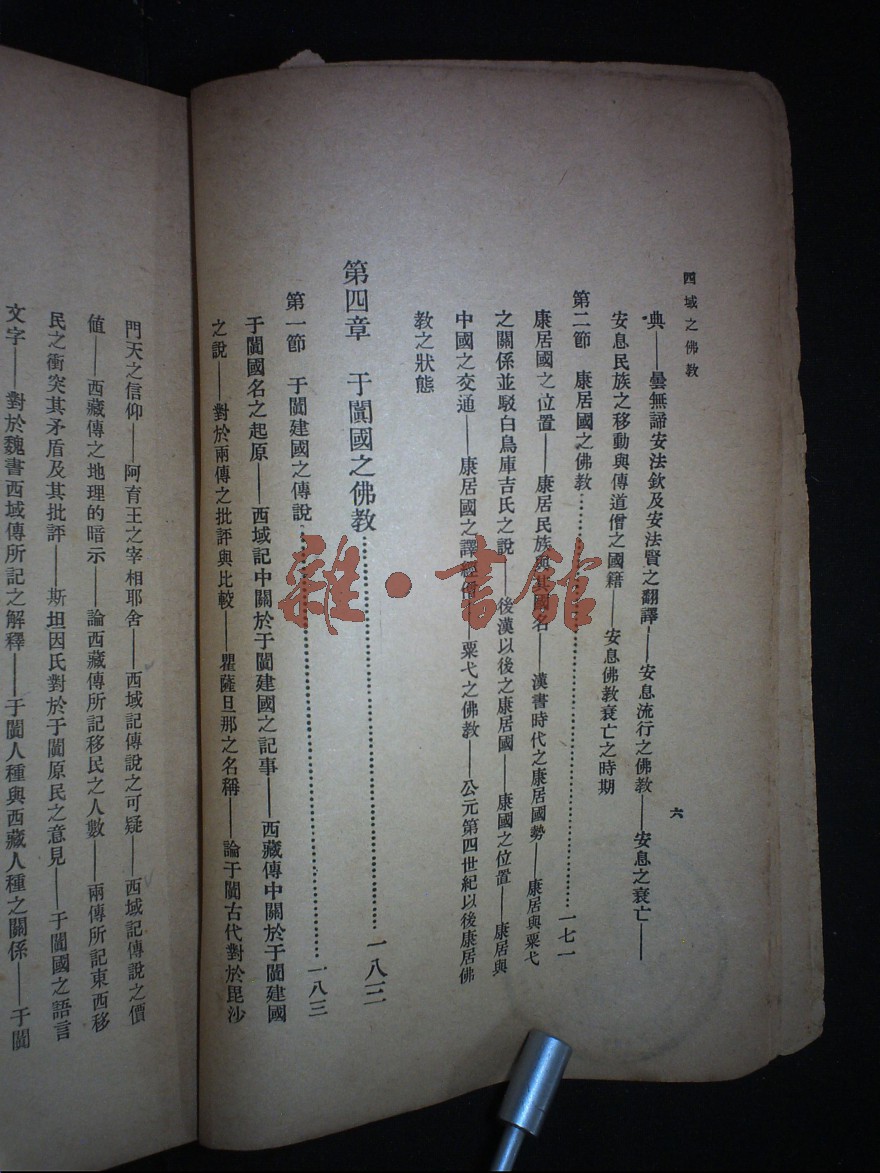 西域之佛教
六
典——曇無諦安法欽及安法賢之翻譯——安息流行之佛教——安息之衰亡——
安息民族之移動與傳道僧之國籍——安息佛教衰亡之時期
第二節 康居國之佛教……一七一
康居國之位置——康居民族與其國名——漢書時代之康居國勢——康居與粟弋
之關係並駁白鳥庫吉氏之說——後漢以後之康居國——康國之位置——康居與
中國之交通——康居國之譯經僧——粟弋之佛教——公元第四世紀以後康居佛
教之狀態
第四章 于闐國之佛教……一八三
第一節 于闐建國之傳說……一八三
于闐國名之起原——西域記中關於于闐建國之記事——西藏傳中關於于闐建國
之說——對於兩傳之批評與比較——瞿薩旦那之名稱——論于闐古代對於毘沙
門天之信仰——阿育王之宰相耶舍——西域記傳說之可疑——西域記傳說之價
値——西藏傳之地理的暗示——論西藏傳所記移民之人數——兩傳所記東西移
民之衝突其矛盾及其批評——斯坦因氏對於于闐原民之意見——于闐國之語言
文字——對於魏書西域傳所記之解釋——于闐人種與西藏人種之關係——于闐
雜·書館